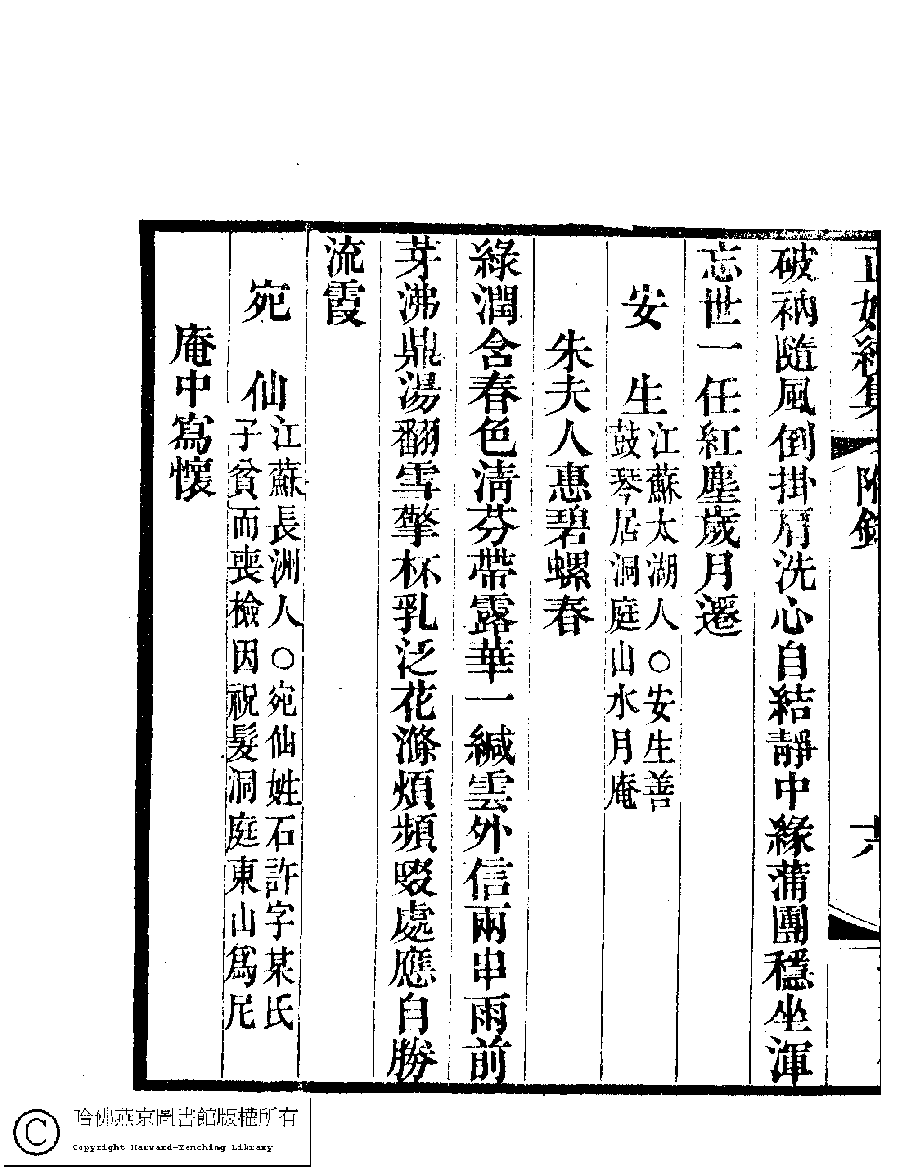 正始續集 附錄 六
破衲隨風倒掛肩洗心自結靜中緣蒲團穩坐渾
忘世一任紅塵歲月遷
安生 江蘇太湖人○安生善
鼓琴居洞庭山水月庵
朱夫人惠碧螺春
綠潤含春色清芬帶露華一緘雲外信兩串雨前
芽沸鼎湯翻雪擎杯乳泛花滌煩頻啜處應自勝
流霞
宛仙 江蘇長洲人○宛仙姓石許字某氏
子貧而喪檢因祝髮洞庭東山為尼
庵中寫懷
哈佛燕京圖書館版權所有
Copyright Harvard-Yenching Library